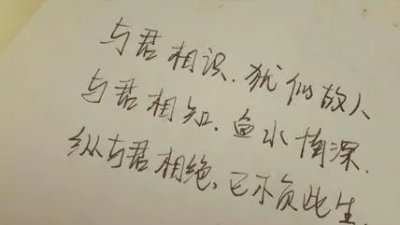 与君相识.犹似故人
与君相知.鱼水情深.
纵与君相绝,已不负此生.